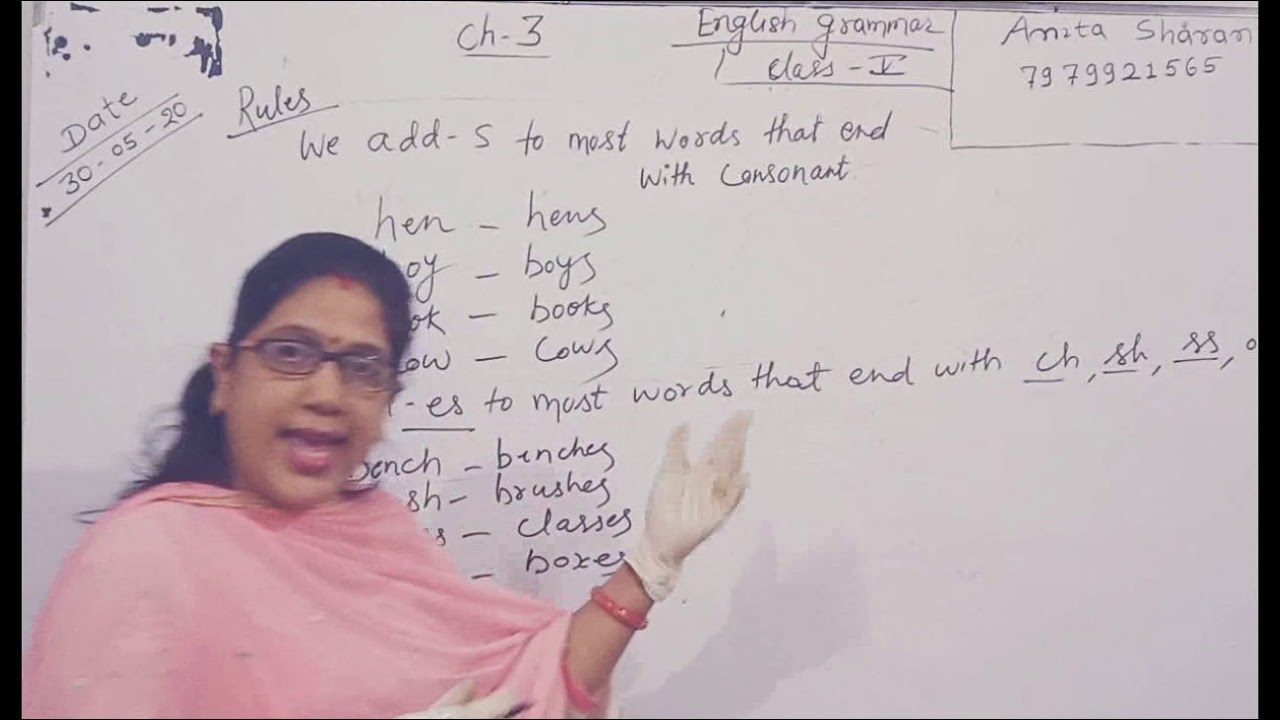 Ch-3
English grammar
Class-V
Amita Sharan
7979921565
Date
30-05-20
Rules
We add-s to most words that end
with Consonant.
hen - hens
oy - boys
ok - books
ow - Cows
-es to most words that end with ch, sh, ss, o
bench - benches
sh- brushes
s - classes
- boxes